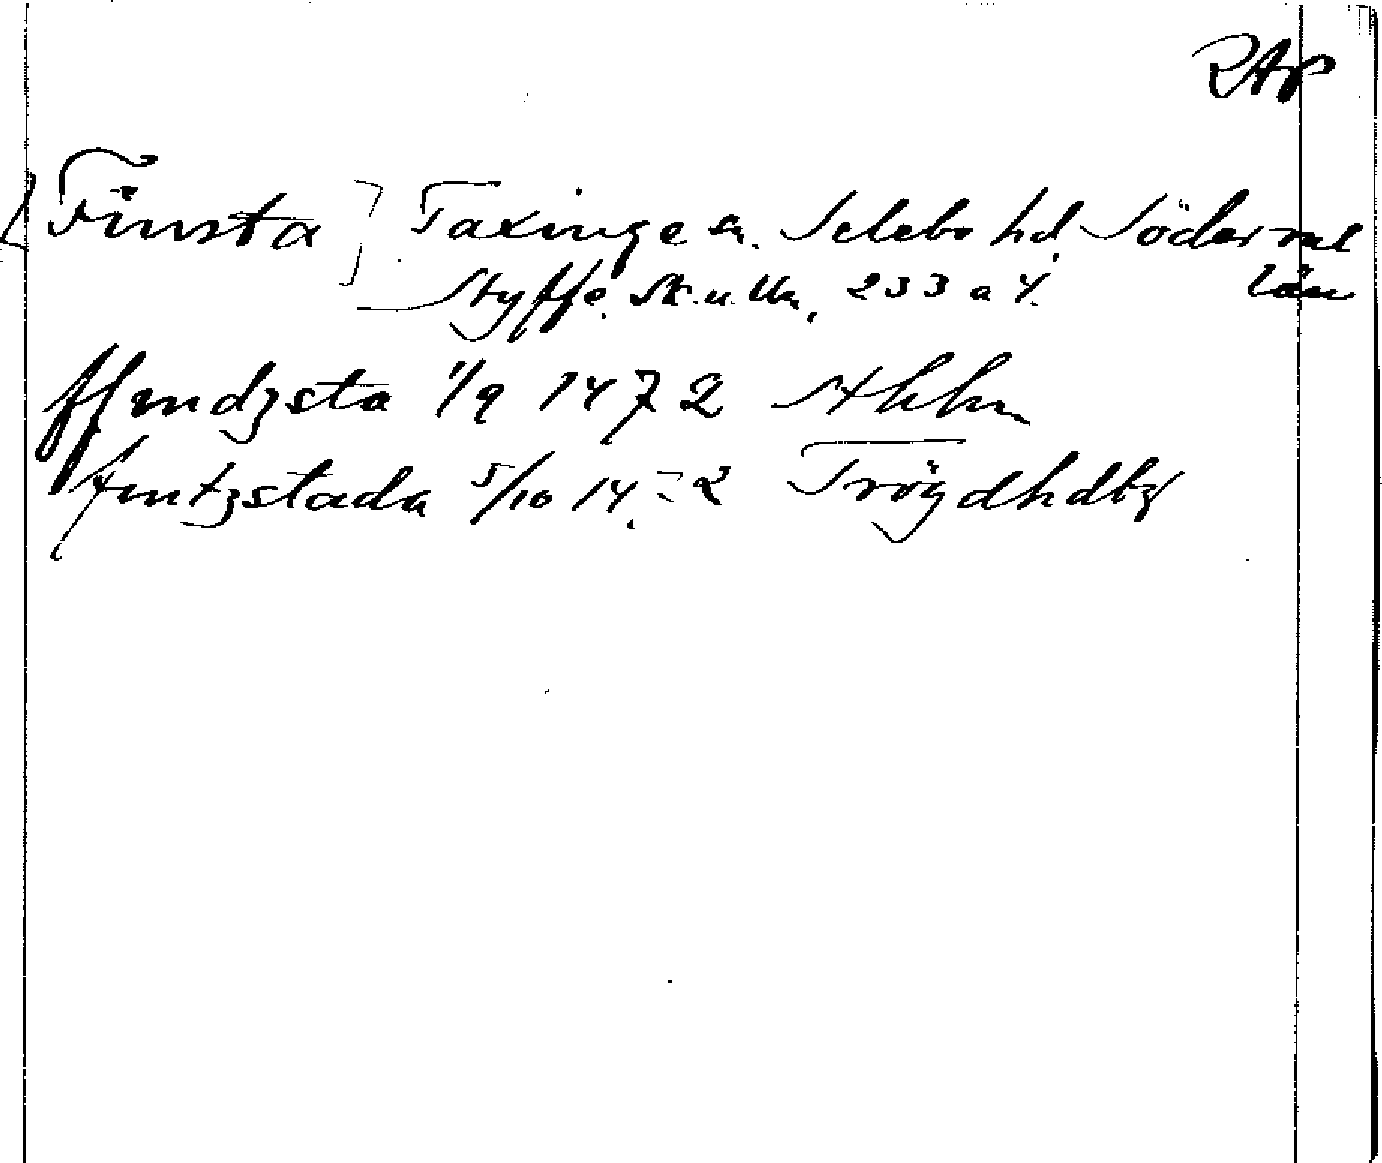 RAP
[Finsta] Taxinge sn. Selebo hd. Söderml
län
Styffe. Sk. u. Un. 233 a 4.
ffindzsta 1/9 1472 Sthlm
fintzstada 5/10 14 2 Tröydhdbz